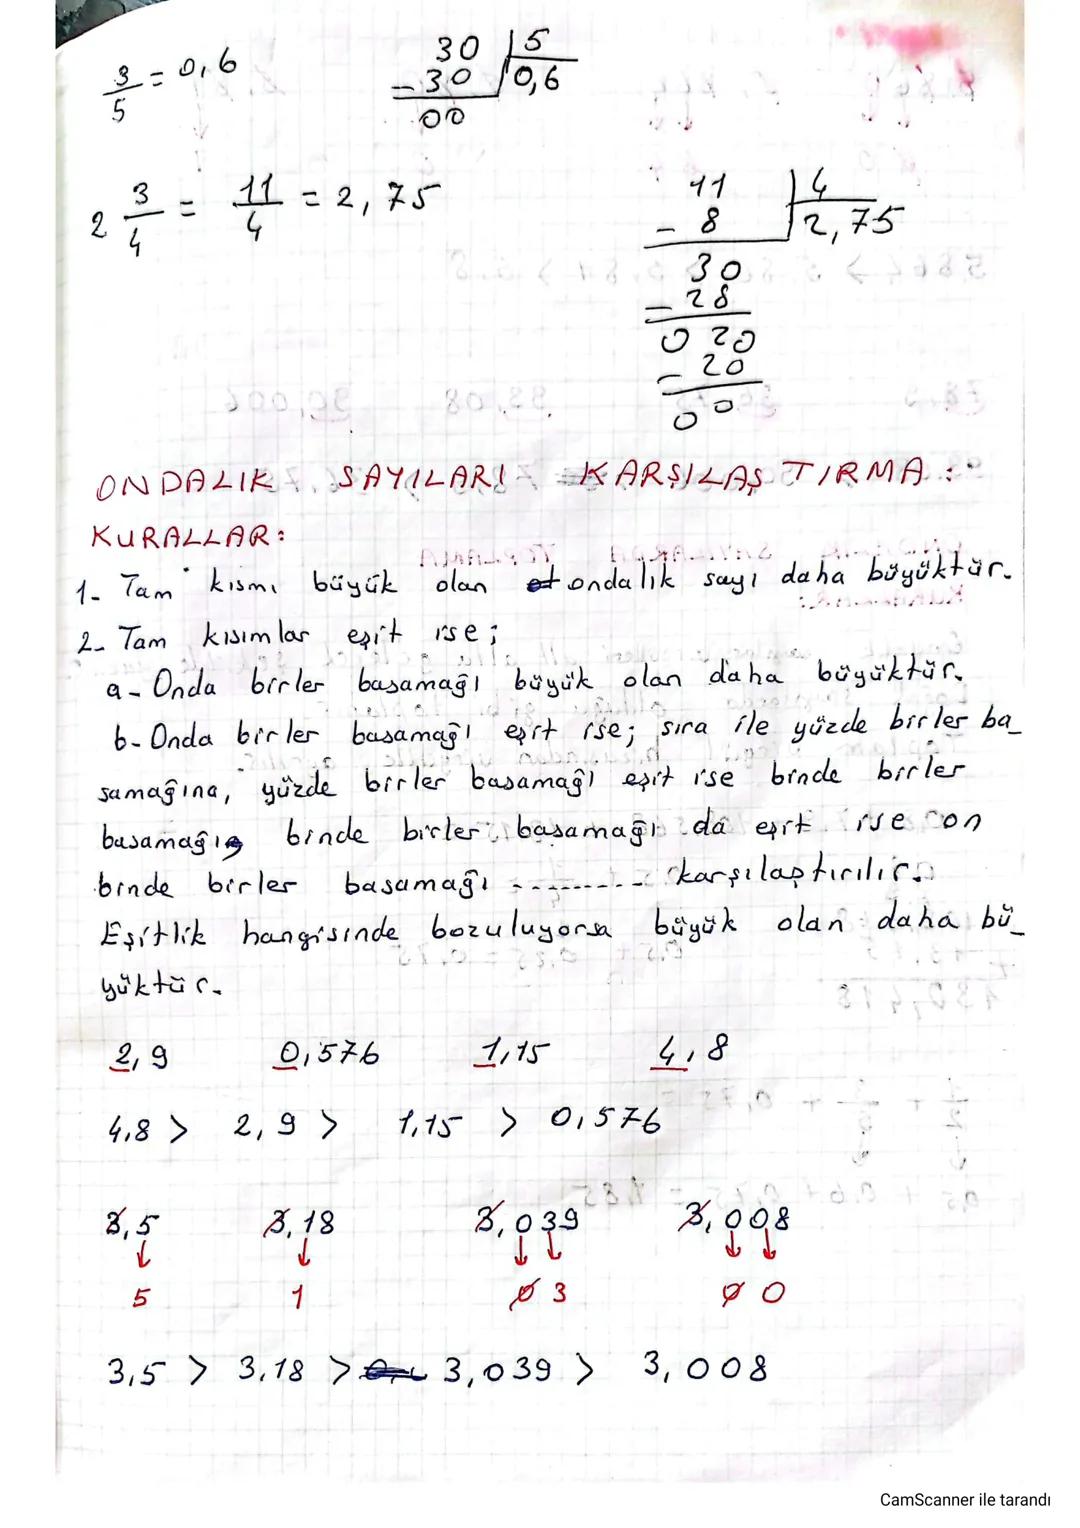 3/5 = 0,6
30 | 5
- 30 | 0,6
00
2 3/4 = 11/4 = 2,75
11 | 4
- 8 | 2,75
30
- 28
0 20
- 20
0 0
ONDALIK SAYILARI KARŞILAŞTIRMA:
KURALLAR:
1- Tam kısmı büyük olan ondalık sayı daha büyüktür.
2- Tam kısımlar eşit ise;
a- Onda birler basamağı büyük olan daha büyüktür.
b- Onda birler basamağı eşit ise; sıra ile yüzde birler ba_
samağına, yüzde birler basamağı eşit ise binde birler
basamağı binde birler basamağı da eşit ise on
binde birler basamağı --------- karşılaştırılır.
Eşitlik hangisinde bozuluyorsa büyük olan daha bü_
yüktür.
2,9 0,576 1,15 4,8
4,8 > 2,9 > 1,15 > 0,576
3,5 3,18 3,039 3,008
↓ ↓ ↓ ↓ ↓ ↓
5 1 0 3 0 0
3,5 > 3,18 > 3,039 > 3,008
CamScanner ile tarandı